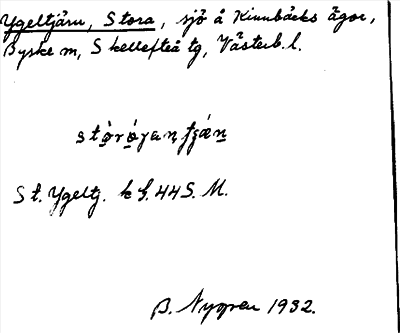 Ygeltjärn, Stora, sjö å Kinnbäcks ägor,
Byske m, Skellefteå tg, Västerb. l.
St. Ygeltj. k f. 44 S. M.
B. Nygren 1932.